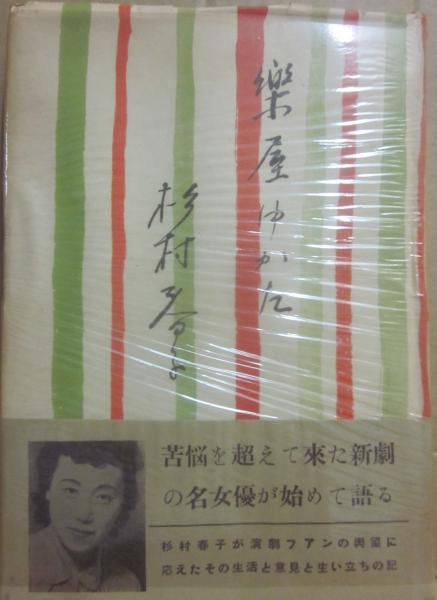 樂屋ゆかた
杉村春子
苦悩を超えて來た新劇
の名女優が始めて語る
杉村春子が演劇フアンの輿望に
応えたその生活と意見と生い立ちの記